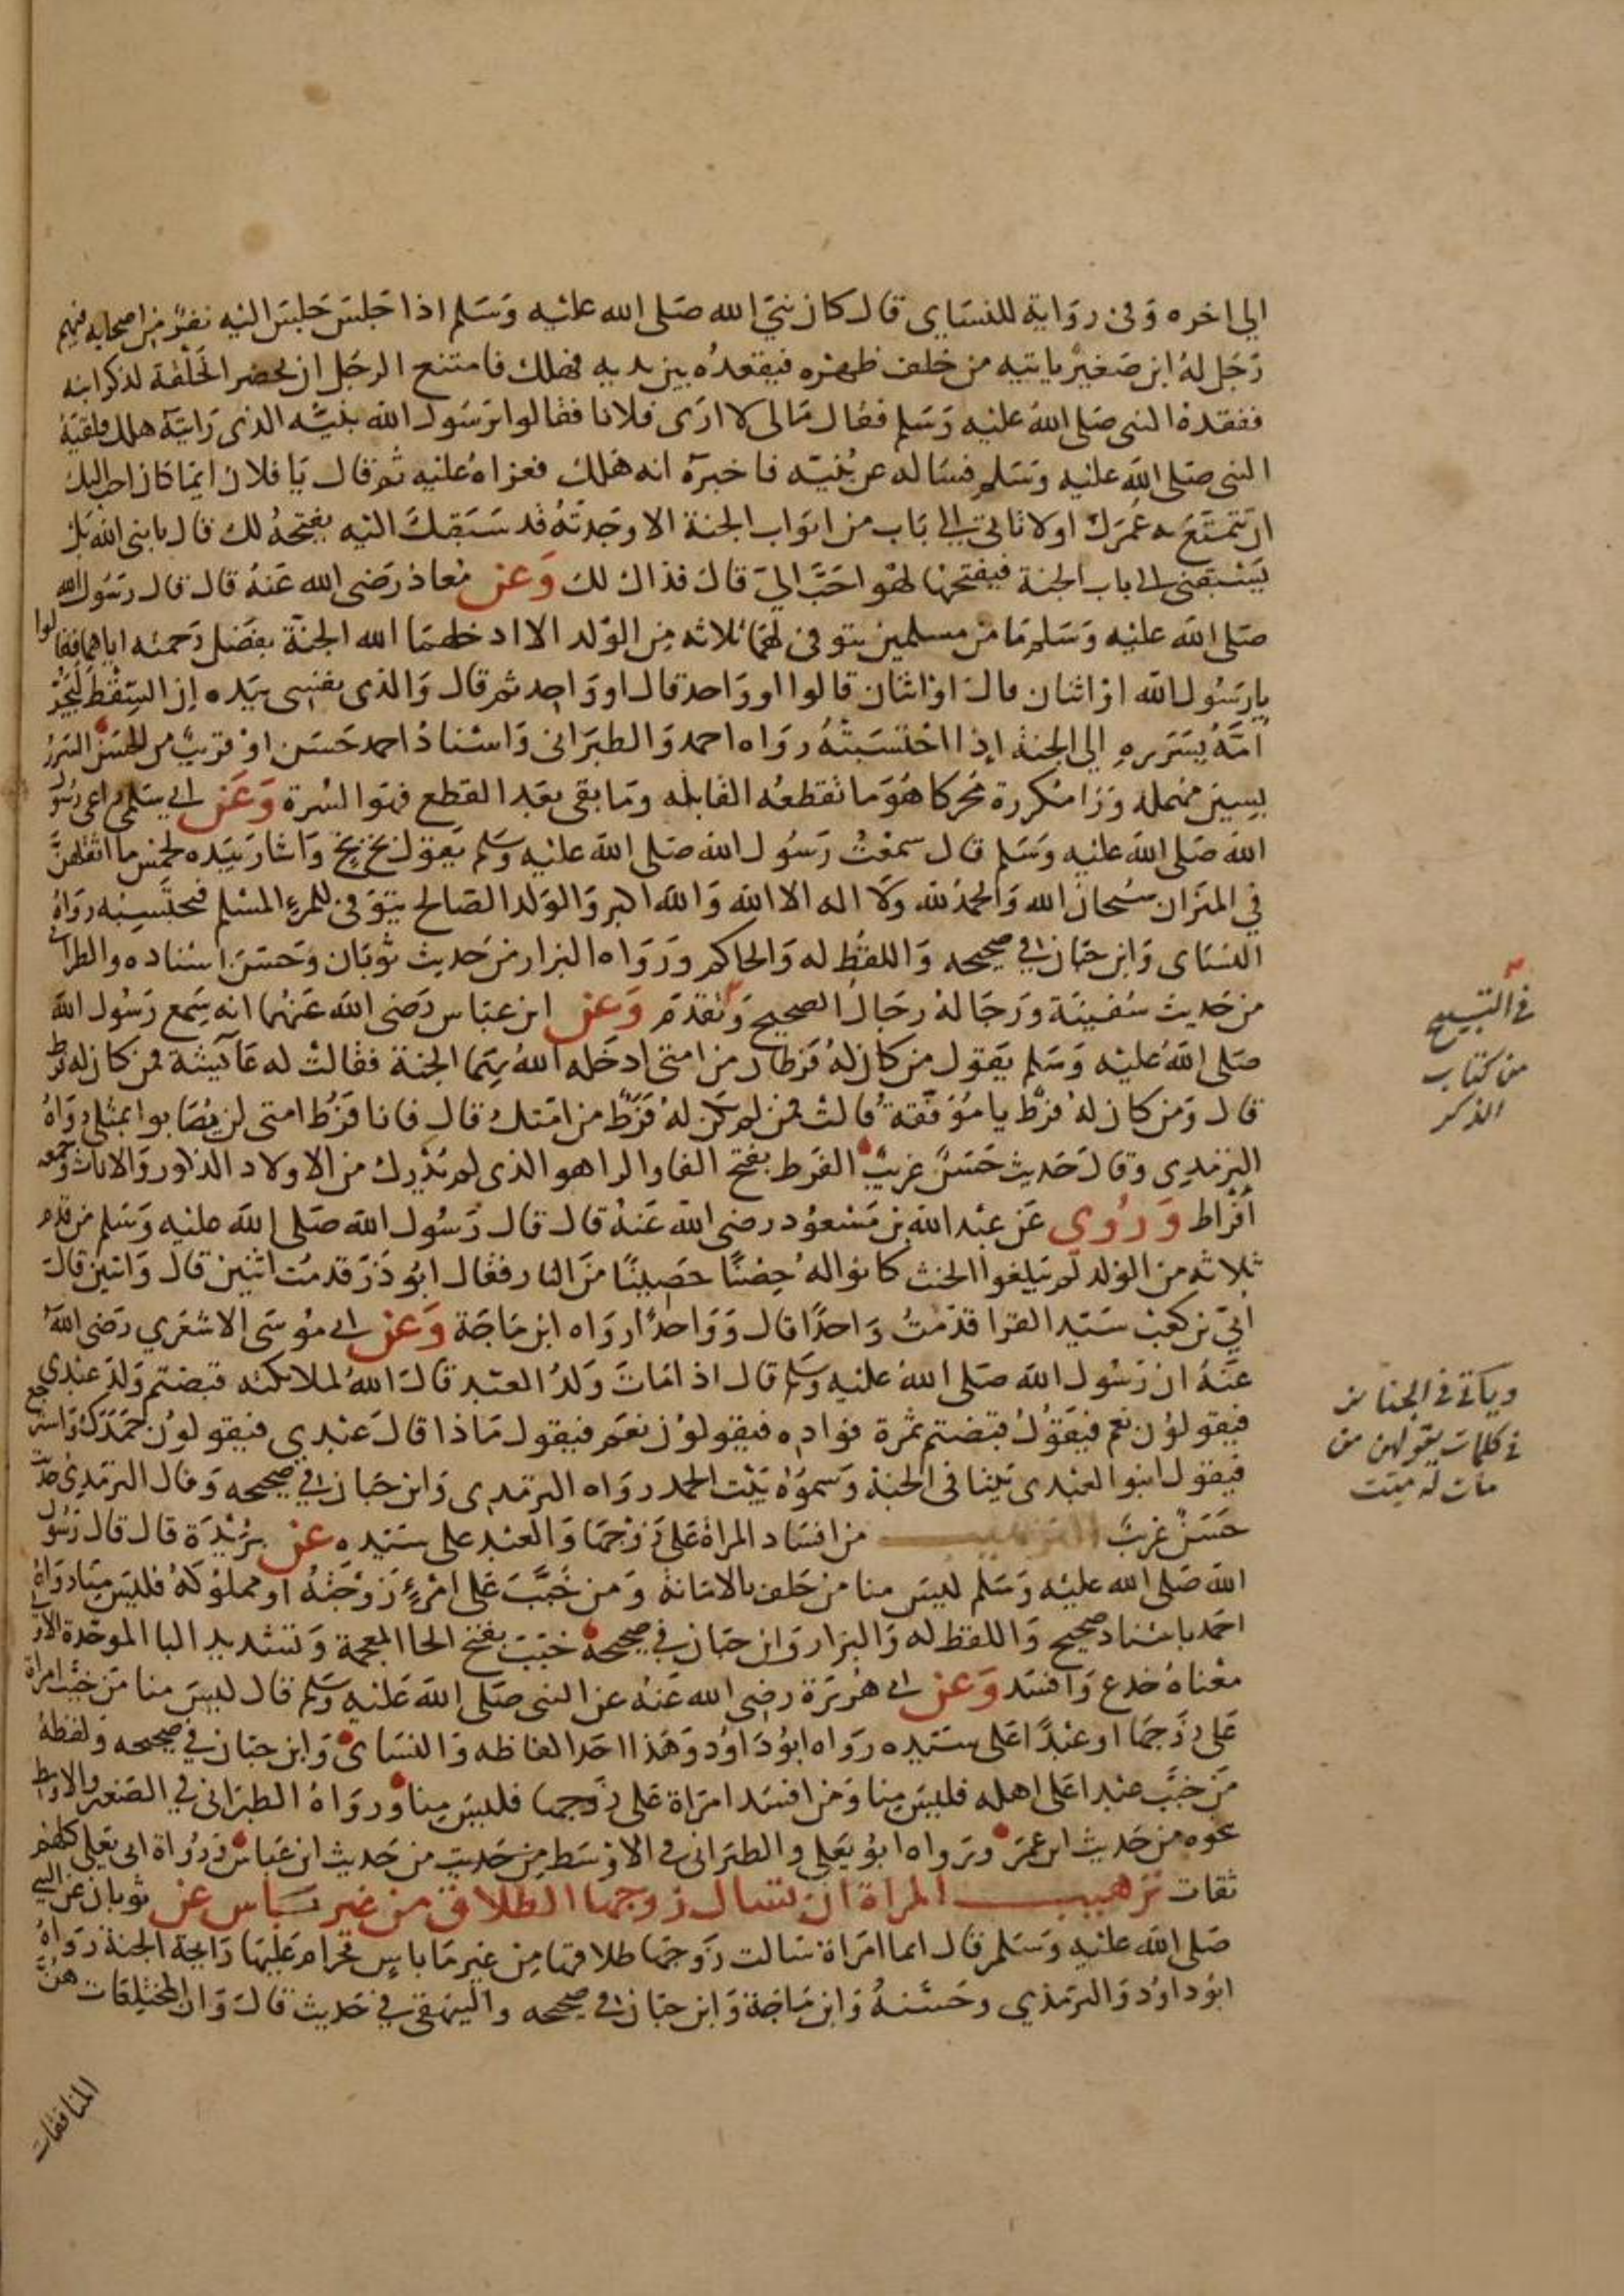 الى اخره وفى رواية للنساى قال كان نبى الله صلى الله عليه وسلم اذا جلس جلس اليه نفر من اصحابه فيهم
رجل له ابن صغير ياتيه من خلف ظهره فيقعده بين يديه فهلك فامتنع الرجل ان يحضر الحلقة لذكر ابنه
ففقده النبى صلى الله عليه وسلم فقال مالى لا ارى فلانا فقالوا يرسول الله بنيه الذى رايته هلك فلقيه
النبى صلى الله عليه وسلم فساله عن بنيه فاخبره انه هلك فعزاه عليه ثم قال يا فلان ايما كان احب اليك
ان تمتع به عمرك او لا تاتى الى باب من ابواب الجنة الا وجدته قد سبقك اليه يفتحه لك قال يا نبى الله بل
يسبقنى الى باب الجنة فيفتحها لهو احب الى قال فذاك لك وعن معاذ رضى الله عنه قال قال رسول الله
صلى الله عليه وسلم ما من مسلمين يتوفى لهما ثلاثه من الولد الا ادخلهما الله الجنة بفضل رحمته اياهما فقالوا
يا رسول الله او اثنان قال او اثنان قالوا او واحد قال او واحد ثم قال والذى نفسى بيده ان السقط ليجر
امه بسرره الى الجنة اذا احتسبته رواه احمد والطبرانى واسناد احمد حسن او قريب من الحسن السرر
بسين مهملة ورا مكررة محركا هو ما تقطعه القابله وما بقى بعد القطع فهو السرة وعن ابى سلمى راعى رسول
الله صلى الله عليه وسلم قال سمعت رسول الله صلى الله عليه وسلم يقول بخ بخ واشار بيده لخمس ما اثقلهن
فى الميزان سبحان الله والحمد لله ولا اله الا الله والله اكبر والولد الصالح يتوفى للمرء المسلم فيحتسبه رواه
النساى وابن حبان فى صحيحه واللفظ له والحاكم ورواه البزار من حديث ثوبان وحسن اسناده والطبرانى
من حديث سفينة ورجاله رجال الصحيح وتقدم وعن ابن عباس رضى الله عنهما انه سمع رسول الله
صلى الله عليه وسلم يقول من كان له فرطان من امتى ادخله الله بهما الجنة فقالت له عائيشة فمن كان له فرط
قال ومن كان له فرط يا موفقة قالت فمن لم يكن له فرط من امتك قال فانا فرط امتى لن يصابوا بمثلى رواه
الترمدى وقال حديث حسن غريب الفرط بفتح الفا والرا هو الذى لم يدرك من الاولاد الذكور والاناث وجمعه
افراط وروى عن عبد الله بن مسعود رضى الله عنه قال قال رسول الله صلى الله عليه وسلم من قدم
ثلاثه من الولد لم يبلغوا الحنث كانوا له حصنا حصينا من النار فقال ابو ذر قدمت اثنين قال واثنين قال
ابى بن كعب سيد القرا قدمت واحدا قال وواحدا رواه ابن ماجة وعن ابى موسى الاشعرى رضى الله
عنه ان رسول الله صلى الله عليه وسلم قال اذا مات ولد العبد قال الله لملائكته قبضتم ولد عبدى
فيقولون نعم فيقول قبضتم ثمرة فواده فيقولون نعم فيقول ماذا قال عبدى فيقولون حمدك واسترجع
فيقول ابنوا لعبدى بيتا فى الجنة وسموه بيت الحمد رواه الترمدى وابن حبان فى صحيحه وقال الترمدى حديث
حسن غريب الترهيب من افساد المراة على زوجها والعبد على سيده عن بريدة قال قال رسول
الله صلى الله عليه وسلم ليس منا من حلف بالامانة ومن خبب على امرء زوجته او مملوكه فليس منا رواه
احمد باسناد صحيح واللفظ له والبزار وابن حبان فى صحيحه خبب بفتح الخا المعجمة وتشديد البا الموحدة الاولى
معناه خدع وافسد وعن ابى هريرة رضى الله عنه عن النبى صلى الله عليه وسلم قال ليس منا من خبب امراة
على زوجها او عبدا على سيده رواه ابو داود وهذا احد الفاظه والنساى وابن حبان فى صحيحه ولفظه
من خبب عبدا على اهله فليس منا ومن افسد امراة على زوجها فليس منا ورواه الطبرانى فى الصغير والاوسط
بنحوه من حديث ابن عمر ورواه ابو يعلى والطبرانى فى الاوسط من حديث من حديث ابن عباس ورواة ابى يعلى كلهم
ثقات ترهيب المراة ان تسال زوجها الطلاق من غير باس عن ثوبان عن النبى
صلى الله عليه وسلم قال ايما امراة سالت زوجها طلاقها من غير ما باس فحرام عليها رايحة الجنة رواه
ابو داود والترمذى وحسنه وابن ماجة وابن حبان فى صحيحه والبيهقى فى حديث قال وان المختلعات هن
المنافقات
فى التسبيح
من كتاب
الذكر
وياتى فى الجنايز
فى كلمات يقولهن من
مات له ميت